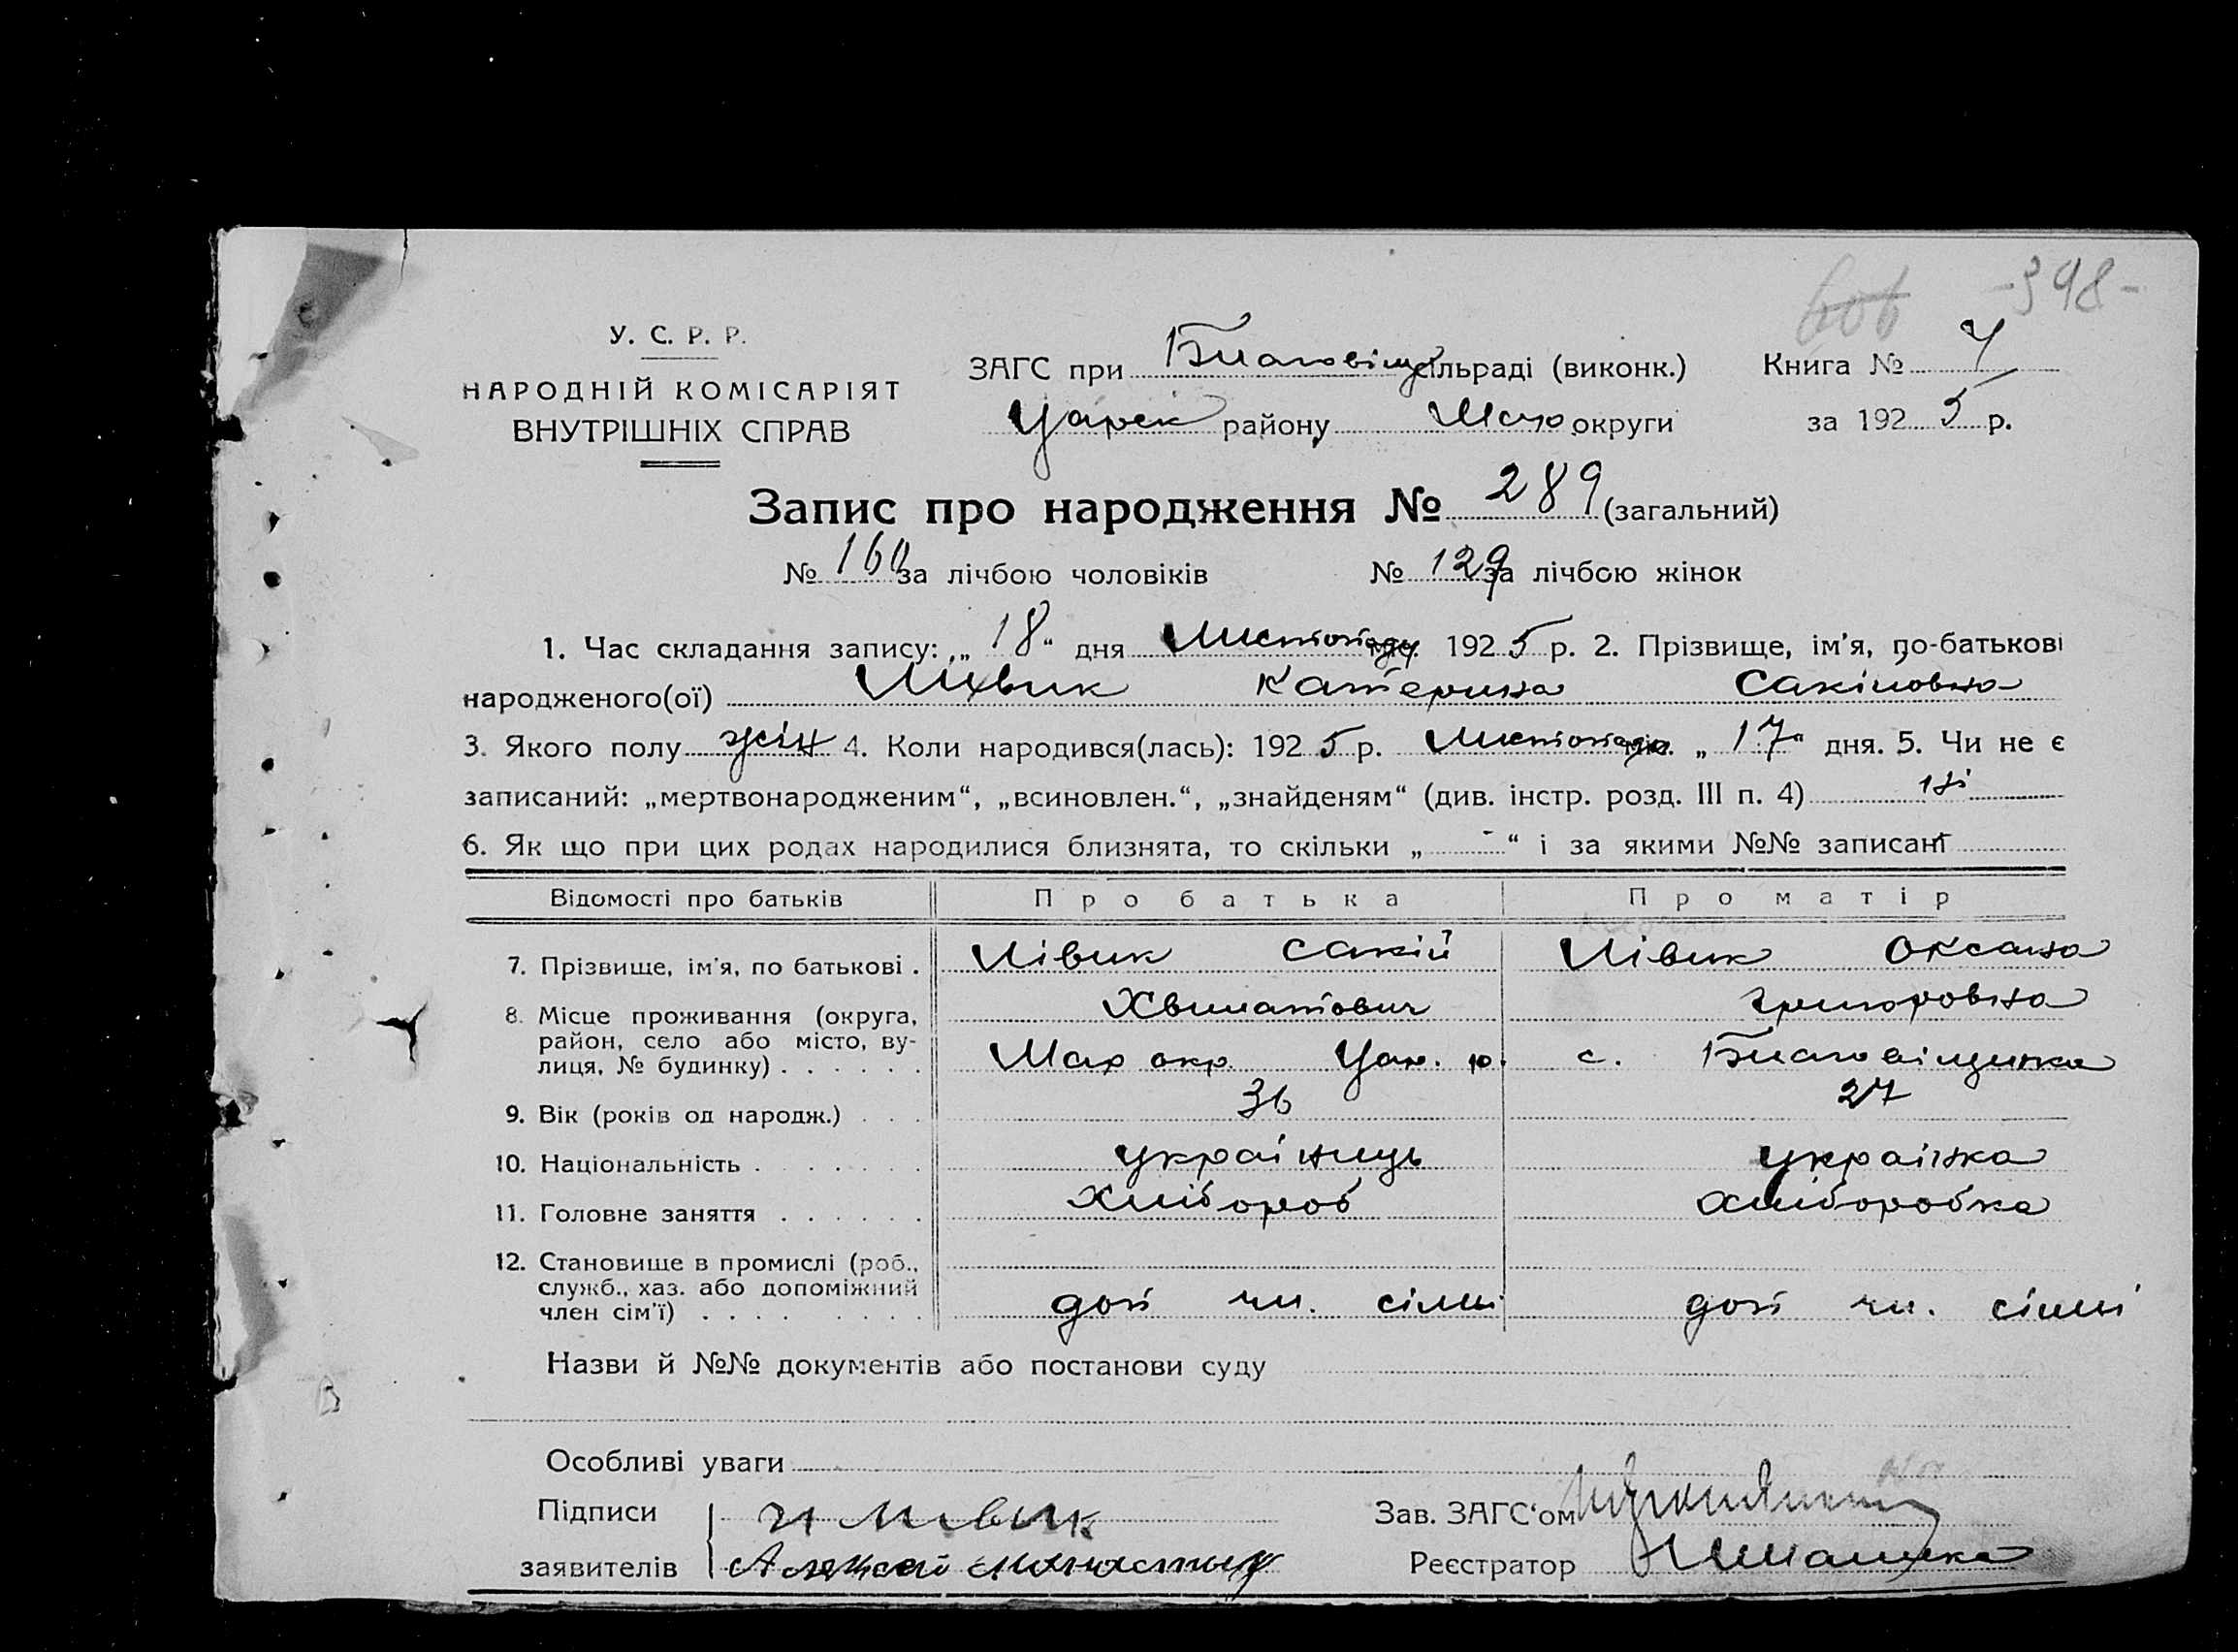 606 -398-
У. С. Р. Р.
НАРОДНІЙ КОМІСАРІЯТ
ВНУТРІШНІХ СПРАВ
ЗАГС при Благовіщ сільраді (виконк.) Книга №
Царек району округи за 1925 р.
Запис про народження № 289 (загальний)
№ 160 за лічбою чоловіків № 129 за лічбою жінок
1. Час складання запису: „18“ дня Листопаду 1925 р. 2. Прізвище, ім'я, по-батькові
народженого(ої) Лівик Катерина Сакіловна
3. Якого полу жін 4. Коли народився(лась): 1925 р. Листопада „17“ дня. 5. Чи не є
записаний: „мертвонародженим“, „всиновлен.“, „знайденям“ (див. інстр. розд. III п. 4) ні
6. Як що при цих родах народилися близнята, то скільки „-“ і за якими №№ записані
Відомості про батьків Про батька Про матір
7. Прізвище, ім'я, по батькові . Лівик Сакій Лівик Оксана
Хвилатович Григоровна
8. Місце проживання (округа,
район, село або місто, ву-
лиця, № будинку) . . . . . . Мар окр. Цар. р. с. Благовіщинка
9. Вік (років од народж.) . . . 36 27
10. Національність . . . . . . . україниць українка
11. Головне заняття . . . . . . Хлібороб Хліборобка
12. Становище в промислі (роб.,
служб., хаз. або допоміжний
член сім'ї) . . . . . . . . доп чл. сімї доп чл. сімї
Назви й №№ документів або постанови суду
Особливі уваги
Підписи Лівик Зав. ЗАГС'ом
заявителів Алексей Монастыр Реєстратор